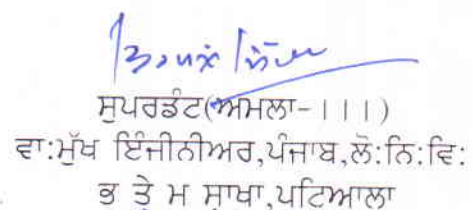 ਸੁਪਰਡੰਟ(ਅਮਲਾ-।।।)
ਵਾ:ਮੁੱਖ ਇੰਜੀਨੀਅਰ,ਪੰਜਾਬ,ਲੋ:ਨਿ:ਵਿ:
ਭ ਤੇ ਮ ਸ਼ਾਖਾ,ਪਟਿਆਲਾ